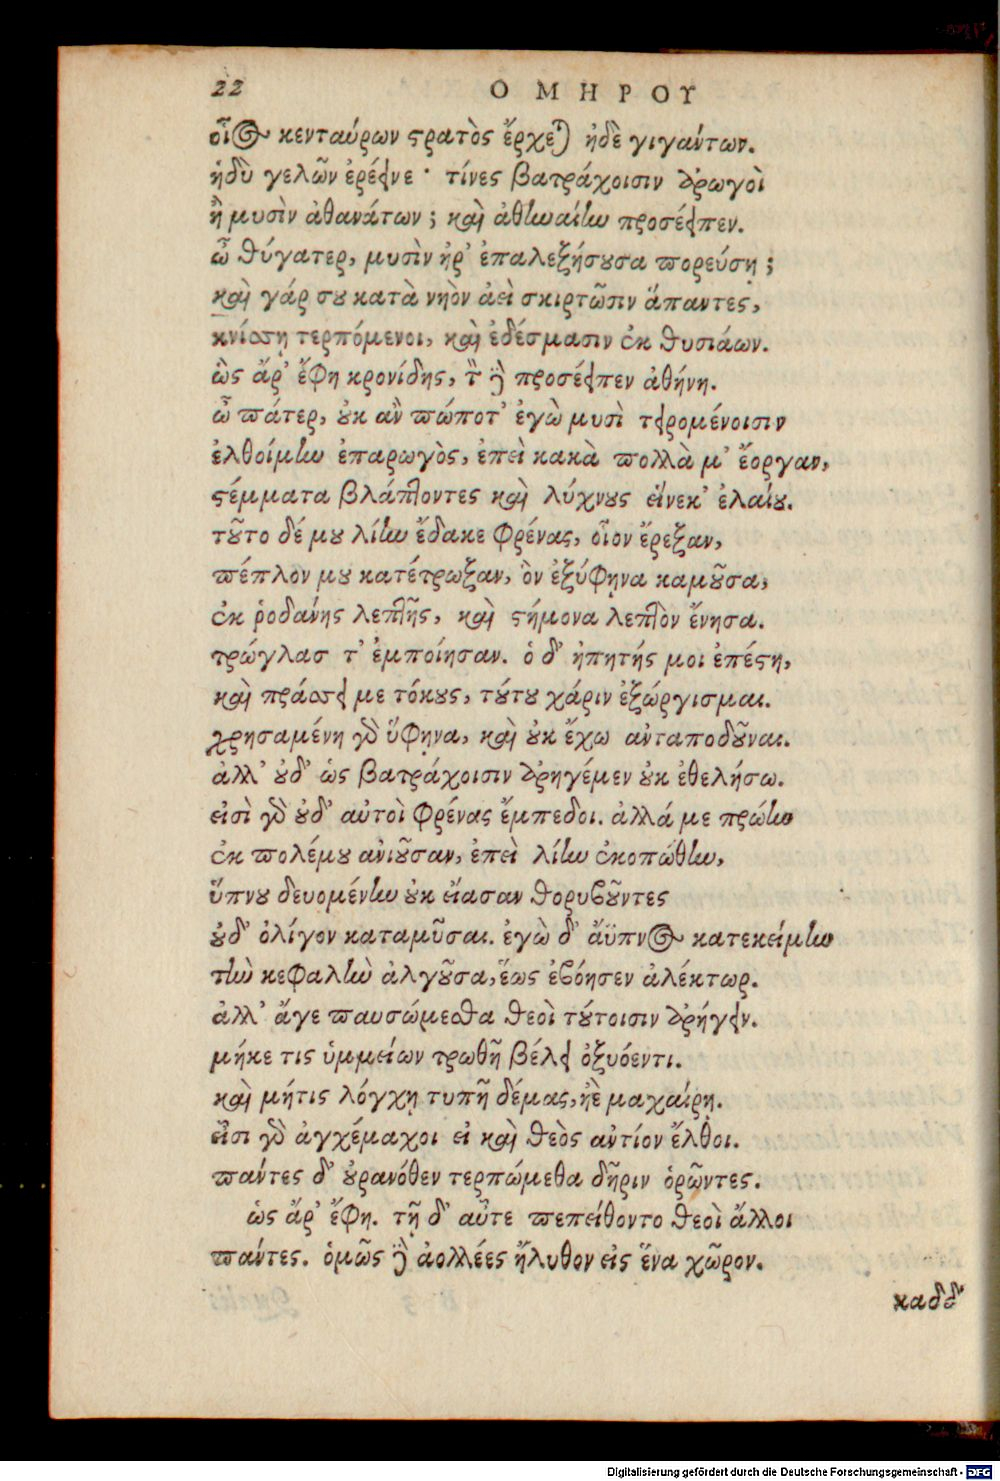 22 ΟΜΗΡΟΥ
οἷος κενταύρων στρατὸς ἔρχεται ἠδὲ γιγάντων.
ἡδὺ γελῶν ἐρέεινε · τίνες βατράχοισιν ἀρωγοὶ
ἢ μυσὶν ἀθανάτων; καὶ ἀθηναίην προσέειπεν.
ὦ θύγατερ, μυσὶν ἠρ’ ἐπαλεξήσουσα πορεύσῃ;
καὶ γάρ σου κατὰ νηὸν ἀεὶ σκιρτῶσιν ἅπαντες,
κνίσσῃ τερπόμενοι, καὶ ἐδέσμασιν ἐκ θυσιάων.
ὣς ἄρ’ ἔφη κρονίδης, τὸν δὲ προσέειπεν ἀθήνη.
ὦ πάτερ, οὐκ ἂν πώποτ’ ἐγὼ μυσὶ τειρομένοισιν
ἐλθοίμην ἐπαρωγὸς, ἐπεὶ κακὰ πολλὰ μ’ ἔοργαν,
στέμματα βλάπτοντες καὶ λύχνους εἵνεκ’ ἐλαίου.
τοῦτο δέ μου λίην ἔδακε φρένας, οἷον ἔρεξαν,
πέπλον μου κατέτρωξαν, ὃν ἐξύφηνα καμοῦσα,
ἐκ ῥοδάνης λεπτῆς, καὶ στήμονα λεπτὸν ἔνησα.
τρώγλας τ’ ἐμποίησαν. ὁ δ’ ἠπητής μοι ἐπέστη,
καὶ πράσσει με τόκους, τούτου χάριν ἐξώργισμαι.
χρησαμένη γὰρ ὕφηνα, καὶ οὐκ ἔχω ἀνταποδοῦναι.
ἀλλ’ οὐδ’ ὡς βατράχοισιν ἀρηγέμεν οὐκ ἐθελήσω.
εἰσὶ γὰρ οὐδ’ αὐτοὶ φρένας ἔμπεδοι. ἀλλά με πρώην
ἐκ πολέμου ἀνιοῦσαν, ἐπεὶ λίην ἐκοπώθην,
ὕπνου δευομένην οὐκ εἴασαν θορυβοῦντες
οὐδ’ ὀλίγον καταμῦσαι. ἐγὼ δ’ ἄϋπνος κατεκείμην
τὴν κεφαλὴν ἀλγοῦσα, ἕως ἐβόησεν ἀλέκτωρ.
ἀλλ’ ἄγε παυσώμεσθα θεοὶ τούτοισιν ἀρήγειν.
μήκε τις ὑμμείων τρωθῇ βέλει ὀξυόεντι.
καὶ μήτις λόγχῃ τυπῇ δέμας, ἠὲ μαχαίρῃ.
εἴσι γὰρ ἀγχέμαχοι εἰ καὶ θεὸς ἀντίον ἔλθοι.
πάντες δ’ οὐρανόθεν τερπώμεθα δῆριν ὁρῶντες.
ὡς ἄρ’ ἔφη. τῇ δ’ αὖτε πεπείθοντο θεοὶ ἄλλοι
πάντες. ὁμῶς δὲ ἀολλέες ἤλυθον εἰς ἕνα χῶρον.
καδδ’
Digitalisierung gefördert durch die Deutsche Forschungsgemeinschaft - DFG